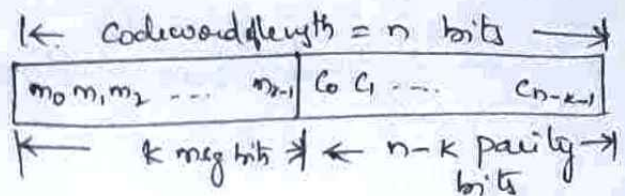 Codeword of length = n bits
m₀ m₁ m₂ ... mₖ₋₁ C₀ C₁ .... Cₙ₋ₖ₋₁
k msg bits n-k parity
bits